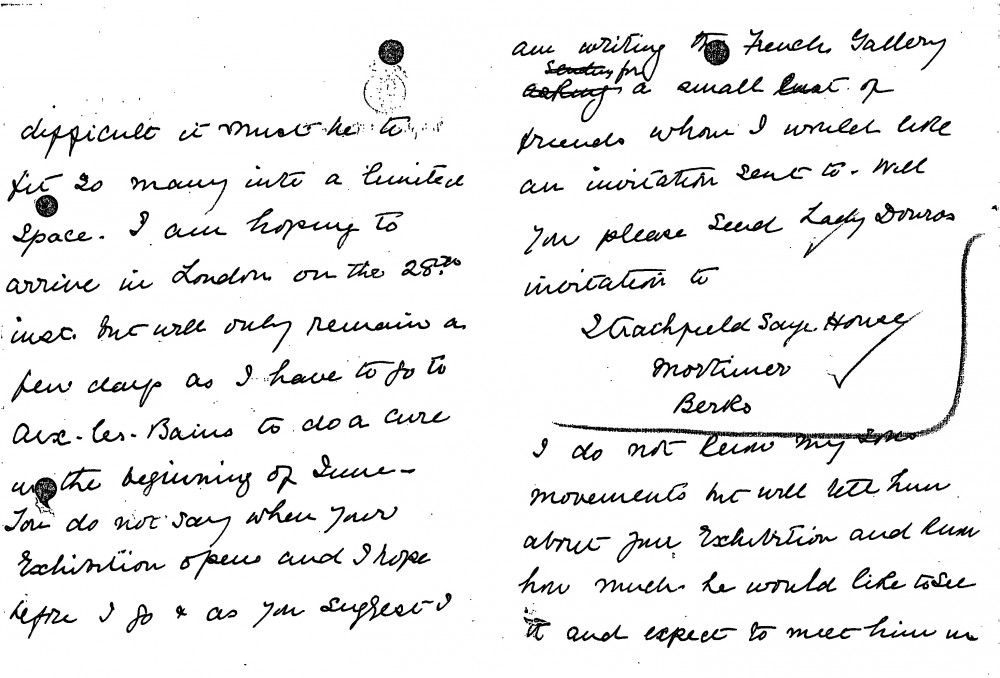 difficult it must be to
fit so many into a limited
space. I am hoping to
arrive in London on the 28th
inst. but will only remain a
few days as I have to go to
Aix-les-Bains to do a cure
in the beginning of June -
You do not say when your
Exhibition opens and I hope
before I go & as you suggest I
am writing the French Gallery
sending for
asking a small list of
friends whom I would like
an invitation sent to. Will
you please send Lady Douros
invitation to
Strathfield Saye House
Mortimer
Berks
I do not know my sons
movements but will tell him
about your Exhibition and know
how much he would like to see
it and expect to meet him in